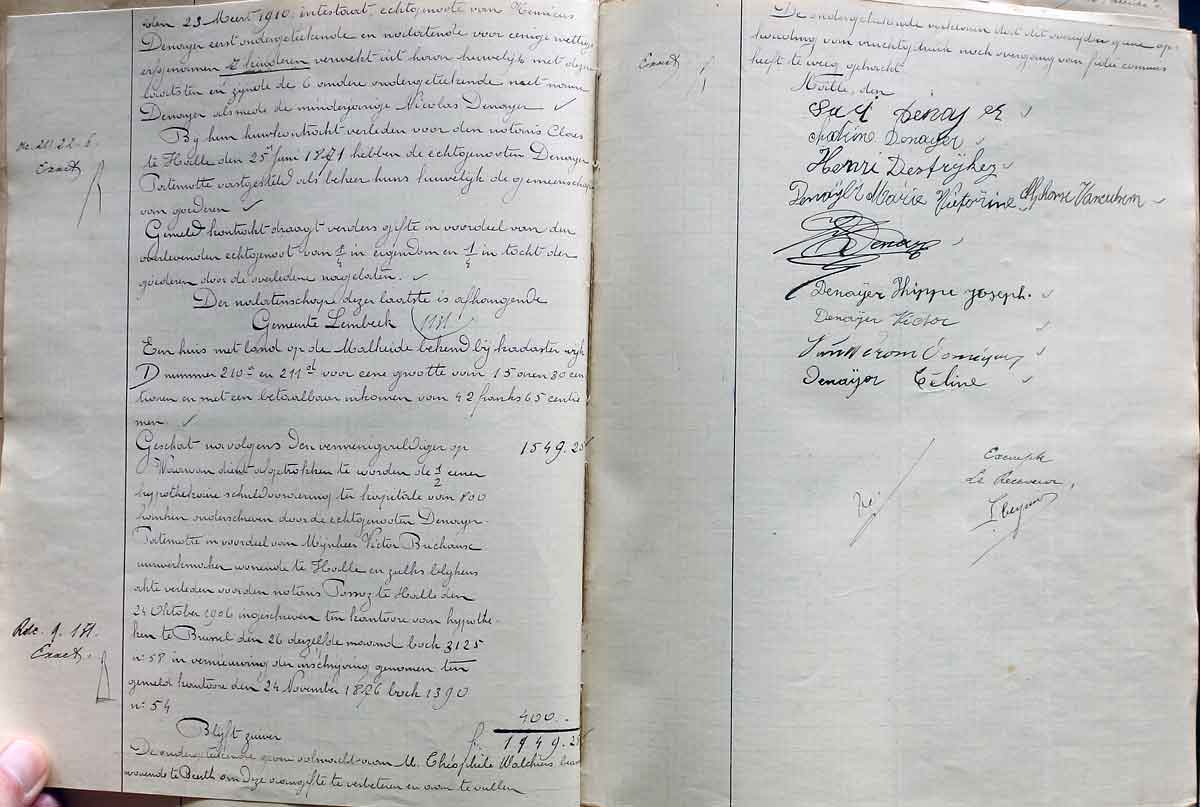 den 23 Meert 1910, intestaat, echtgenoote van
Denayer eerst ondergeteekende en nalatende voor eenige wettige
erfgenamen kinderen verwekt uit haren huwelijk met
laatsten en zynde de 6 andere ondergeteekende
Denayer alsmede de minderjarige Nicolas Denayer
By hun huwkontrackt verleden voor den notaris Claes
te Halle den 25n Juni 1871 hebben de echtgenooten Denayer
vastgesteld als beheer huns huwelijk de gemeenschap
van goederen
Gemeld kontrackt draagt verders gifte in voordeel van den
overlevenden echtgenoot van 1/4 in eigendom en 1/4 in tocht der
goederen door de overledene nagelaten.
Der nalatenschape dezer laatste is afhangende
Gemeente Lembeek
Een huis met land op de Malheide bekend bij kadaster wijk
D nummer 210 en 211 voor eene grootte van 15 aren 30 cen
tiaren en met een betaalbaar inkomen van 42 franks 65 centie
men
Geschat navolgens den vermenigvuldiger op 1549.25
Waarvan dient afgetrokken te worden de 1/2 eener
hypothekaire schuldvordering ten kapitale van 800
franken onderschreven door de echtgenooten Denayer-
in voordeel van Mijnheer Victor
uurwerkmaker wonende te Halle en zulks blijkens
akte verleden voor den notaris Possoz te Halle den
24 Oktober 1906 ingeschreven ten kantoore van hypothe-
ken te Brussel den 26 derzelfde maand boek 3125
n° 58 in vernieuwing der inschrijving genomen ten
gemeld kantoore den 24 November 1896 boek 1390
n° 54
400.-
Blijft zuiver f. 1949.25
De ondergeteekende geven volmacht aan M. Théophile
wonende te om deze aangifte te verbeteren en aan te vullen
Exact
Rec. 9. 181.
Exact.
De ondergeteekende verklaren dat dit overlijden geene op-
houding van vruchtgebruik noch overgang van fidei commis
heeft te weeg gebracht
Halle, den
Exact
Denayer
Denayer
Henri Destryker
Denayer Marie Victorine Alphonse Vanculsem
Denayer
Denaÿer Joseph.
Denaÿer Victor
Denaÿer Céline
Exempt
Le Receveur,